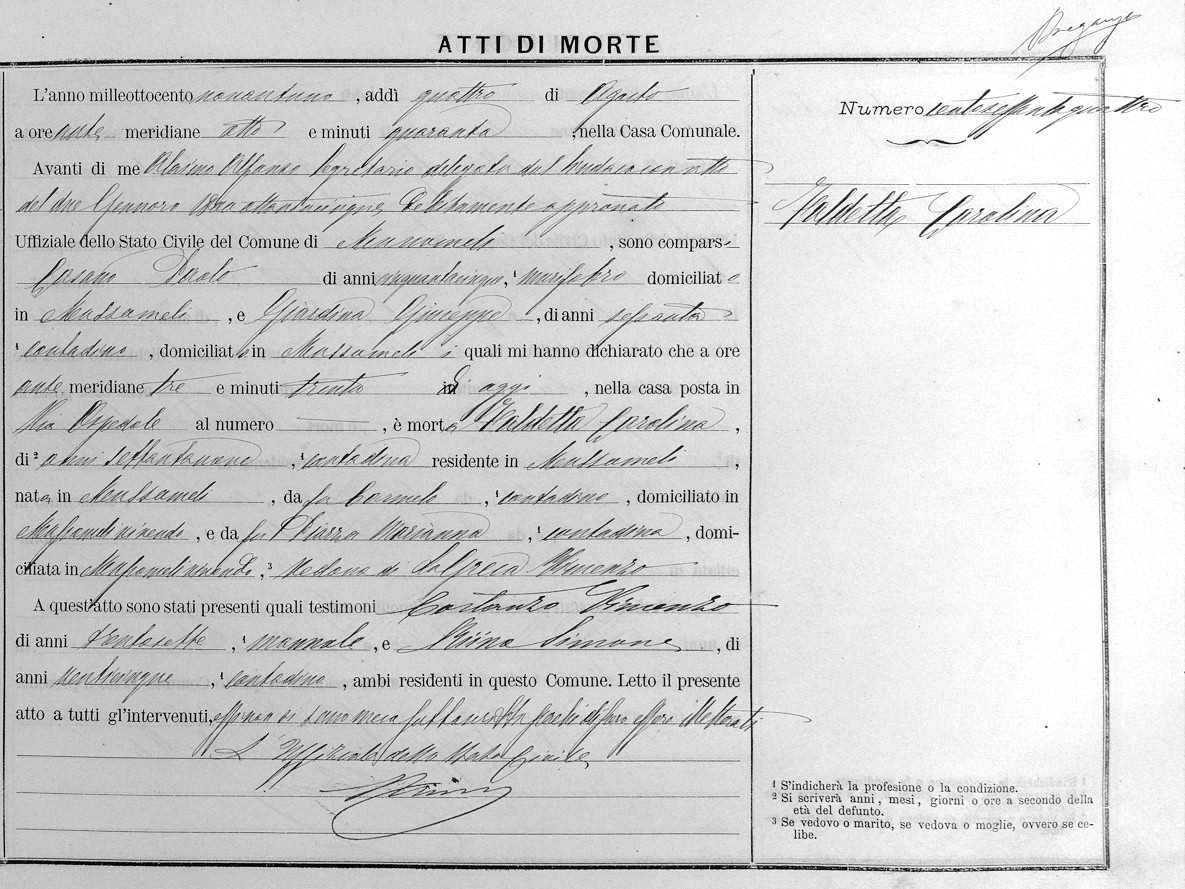 ATTI DI MORTE
L'anno milleottocento novantuno, addì quattro di Agosto
a ore ante meridiane otto e minuti quaranta, nella Casa Comunale.
Avanti di me Alfonso Segretario delegato del Sindaco con atto
del due Gennaro debitamente approvato
Uffiziale dello Stato Civile del Comune di Mussomeli, sono compars
Paolo di anni cinquantacinque, ¹ domiciliato
in Mussomeli, e Giardina Giuseppe, di anni sessanta
¹ contadino, domiciliato in Mussomeli i quali mi hanno dichiarato che a ore
ante meridiane tre e minuti trenta di oggi, nella casa posta in
Via Ospedale al numero , è morta Valdetta Carolina,
di ² anni settantanove, ¹ contadina residente in Mussomeli,
nata in Mussomeli, da fu Carmelo, ¹ contadino, domiciliato in
Mussomeli vivendo, e da fu Piazza Marianna, ¹ contadina, domi-
ciliata in Mussomeli vivendo, ³ Vedova di Vincenzo
A quest'atto sono stati presenti quali testimoni Costanzo Vincenzo
di anni trentasette, ¹ mannale, e Riina Simone, di
anni venticinque, ¹ contadino, ambi residenti in questo Comune. Letto il presente
atto a tutti gl'intervenuti, illetterati
L'Uffiziale dello Stato Civile
Numero centosessantaquattro
Valdetta Carolina
¹ S'indicherà la profesione o la condizione.
² Si scriverà anni, mesi, giorni o ore a secondo della
età del defunto.
³ Se vedovo o marito, se vedova o moglie, ovvero se ce-
libe.